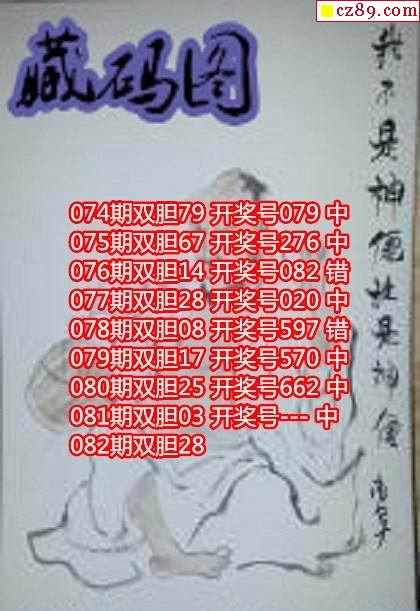 cz89.com
藏码图
074期双胆79 开奖号079 中
075期双胆67 开奖号276 中
076期双胆14 开奖号082 错
077期双胆28 开奖号020 中
078期双胆08 开奖号597 错
079期双胆17 开奖号570 中
080期双胆25 开奖号662 中
081期双胆03 开奖号--- 中
082期双胆28
我不是神仙谁是神仙